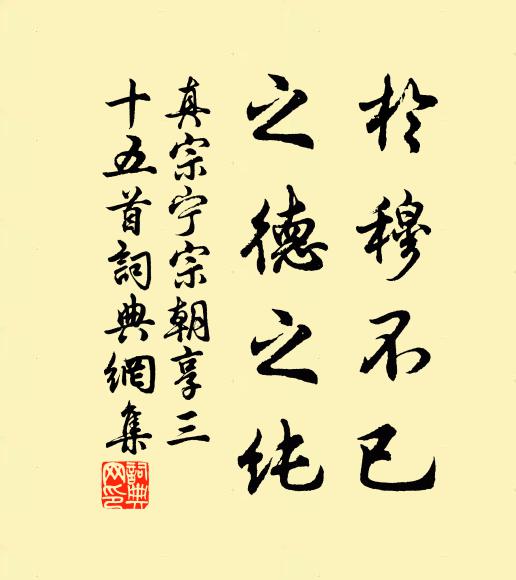 於穆不已
之德之纯
真宗宁宗朝享三
十五首詞典網集
詞典
网印